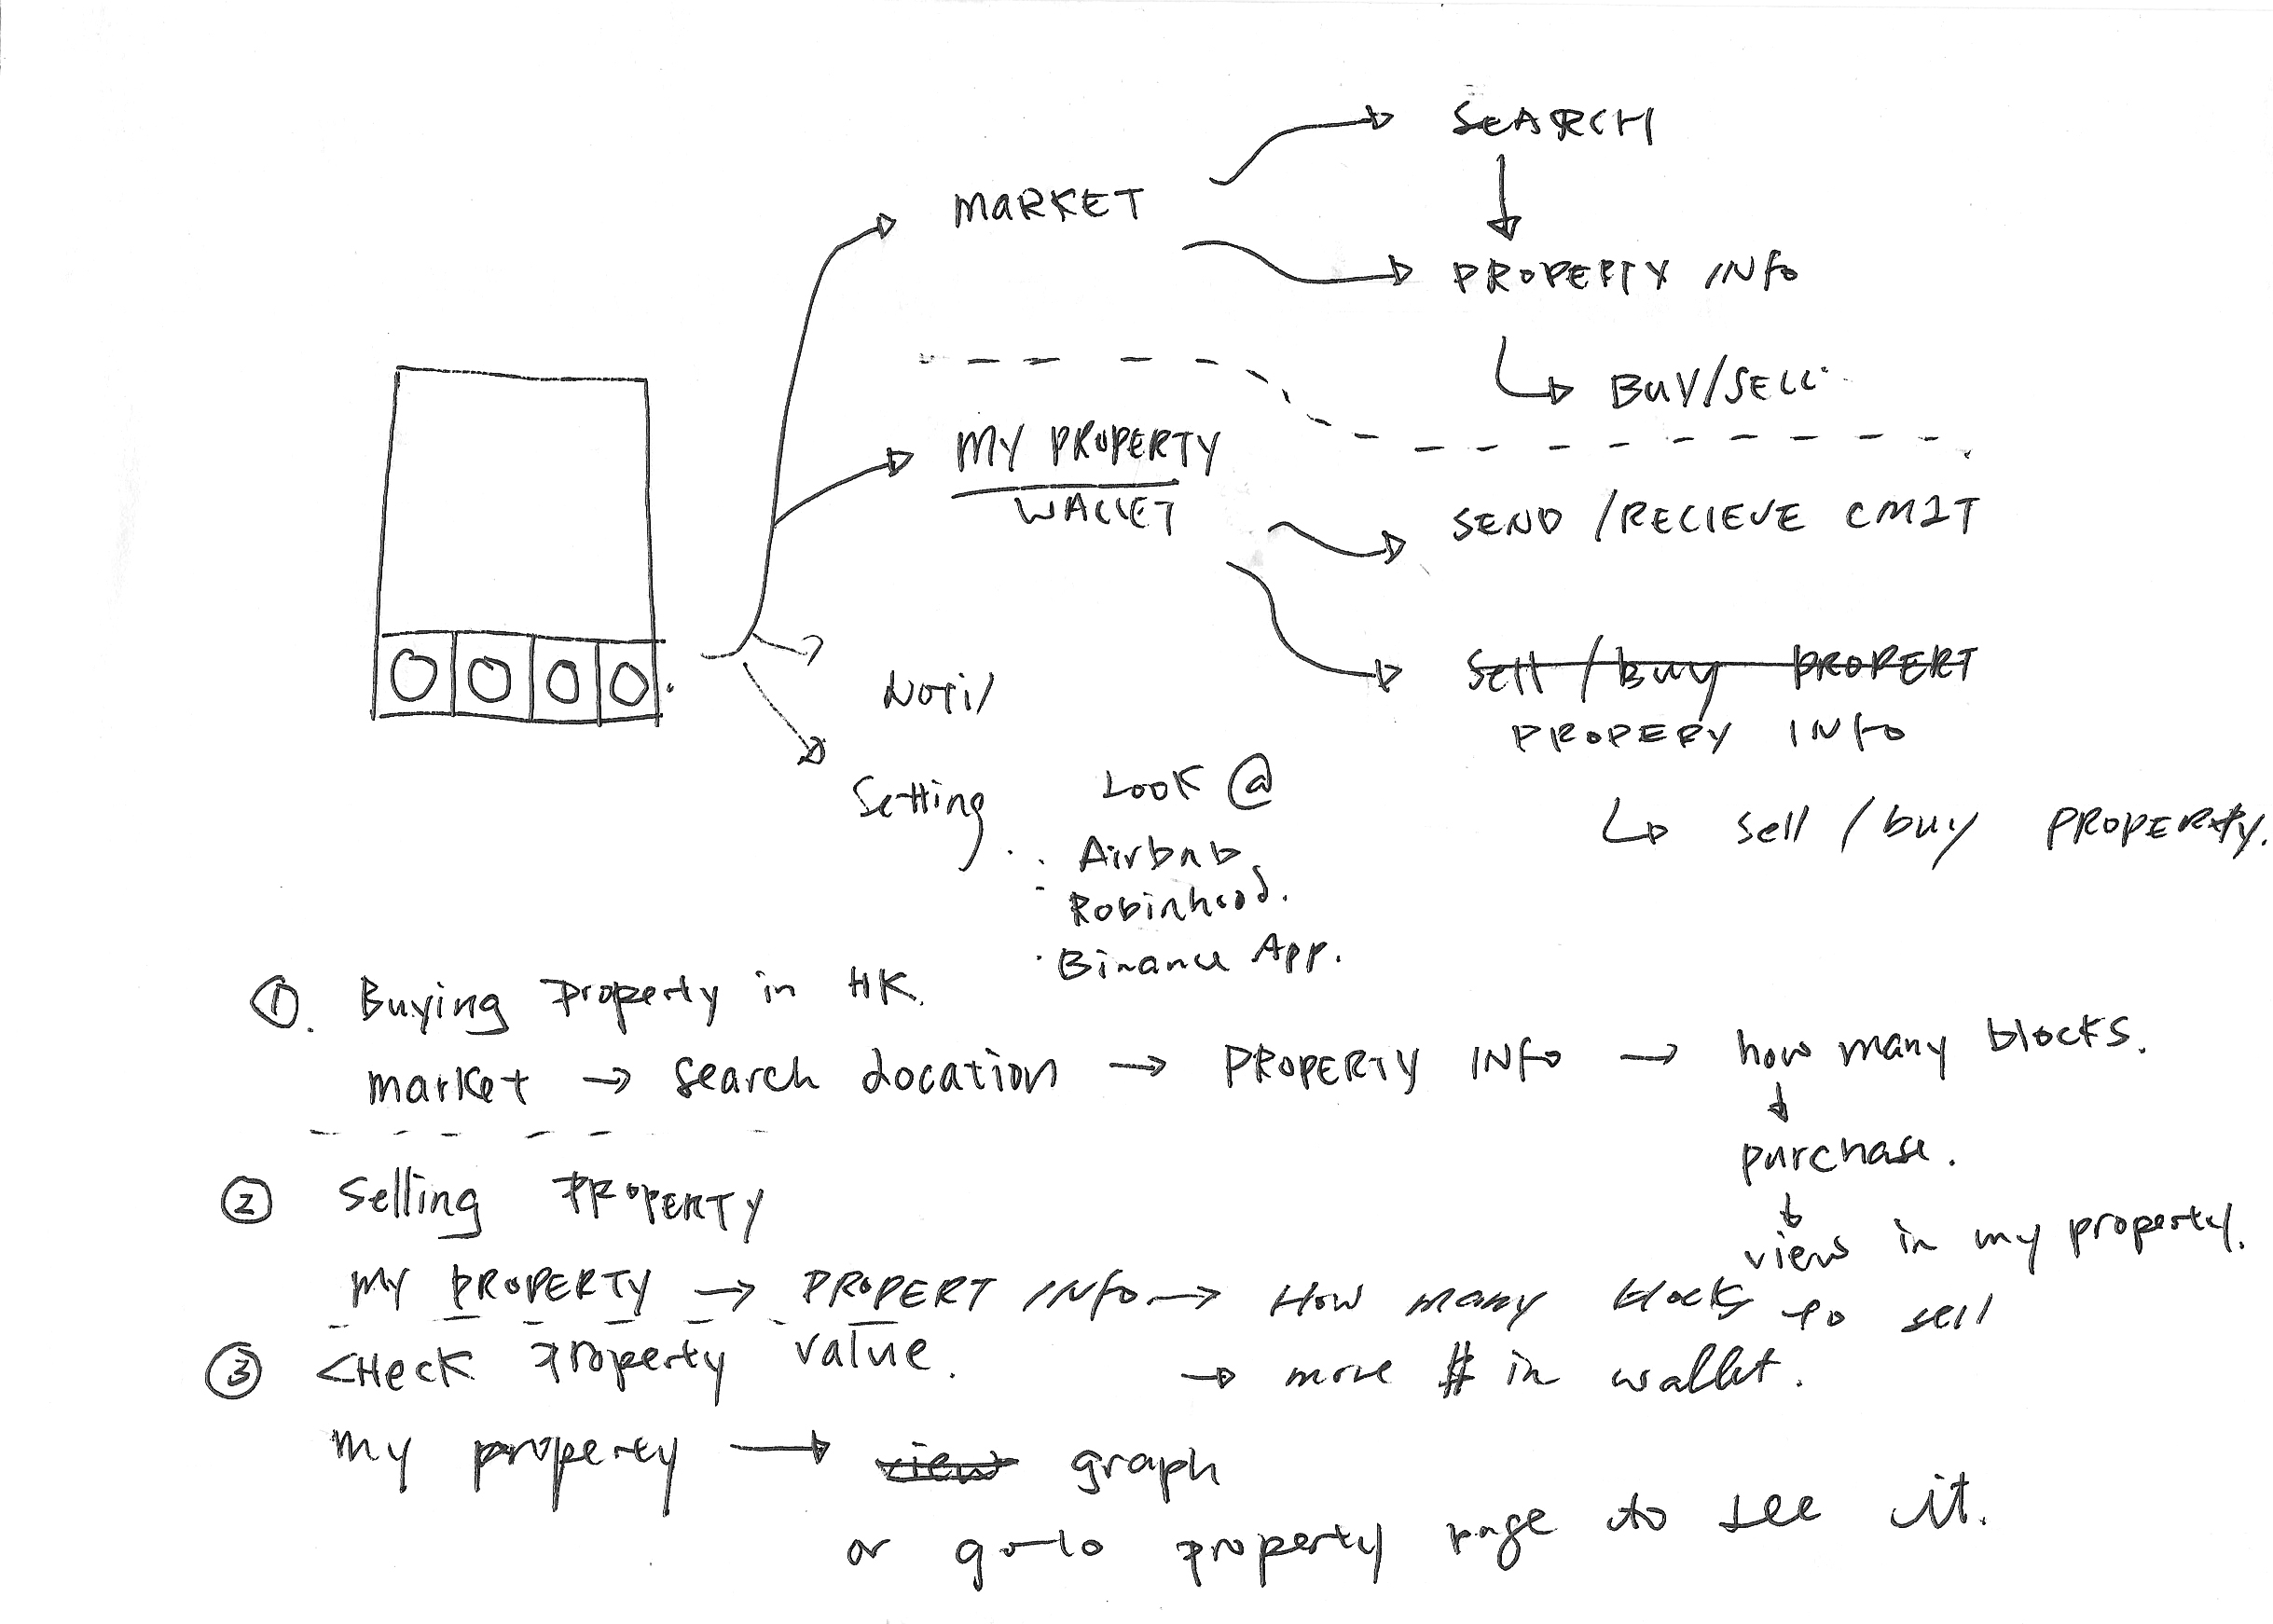 SEARCH
MARKET
PROPERTY INFO
BUY/SELL
MY PROPERTY
WALLET
SEND / RECIEVE CM2T
Sell / buy PROPERT
PROPERY INFO
Notif
Setting
Look @
Airbnb
Robinhood.
Binance App.
sell / buy PROPERTY.
1. Buying property in HK.
market → search location → PROPERTY INFO → how many blocks.
purchase.
view in my property.
2 Selling PROPERTY
MY PROPERTY → PROPERT INFO → How many blocks to sell
→ more $ in wallet.
3 CHeck property value.
my property → view graph
or go to property page to see it.